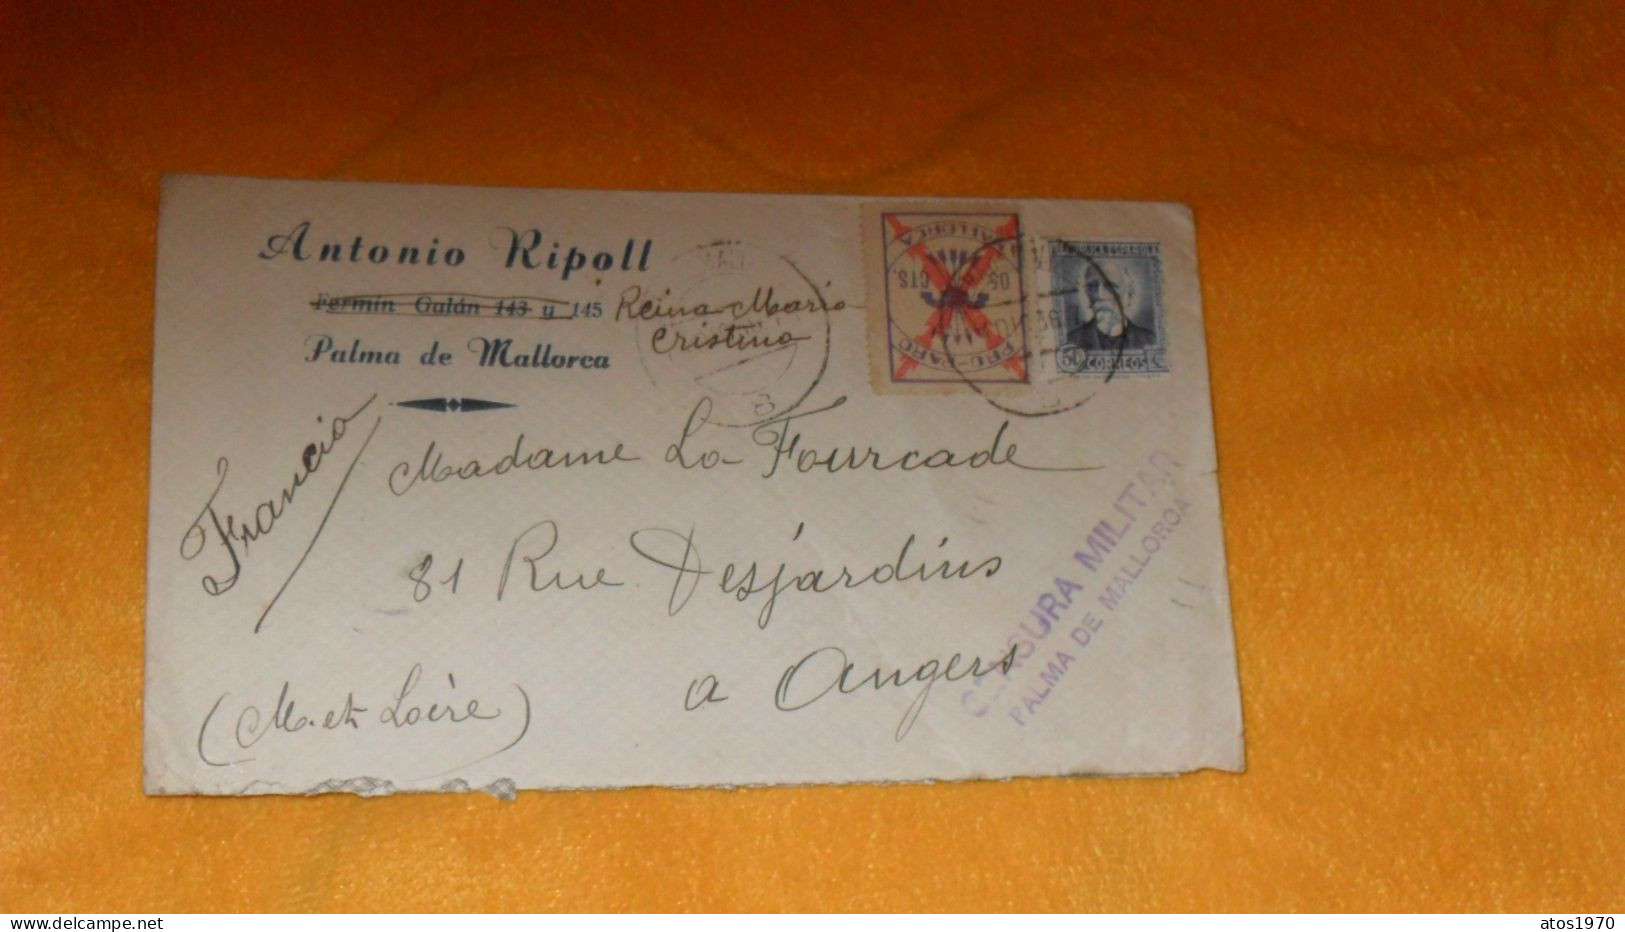 Antonio Ripoll
Fermín Galán 143 y 145 Reina Maria
Cristina
Palma de Mallorca
MALLORCA
05 CTS.
PRO-PARO
REPUBLICA ESPAÑOLA
50 CORREOS C
Francia
Madame La Fourcade
81 Rue Desjardins
a Angers
(M. et Loire)
CENSURA MILITAR
PALMA DE MALLORCA
delcampe.net
atos1970